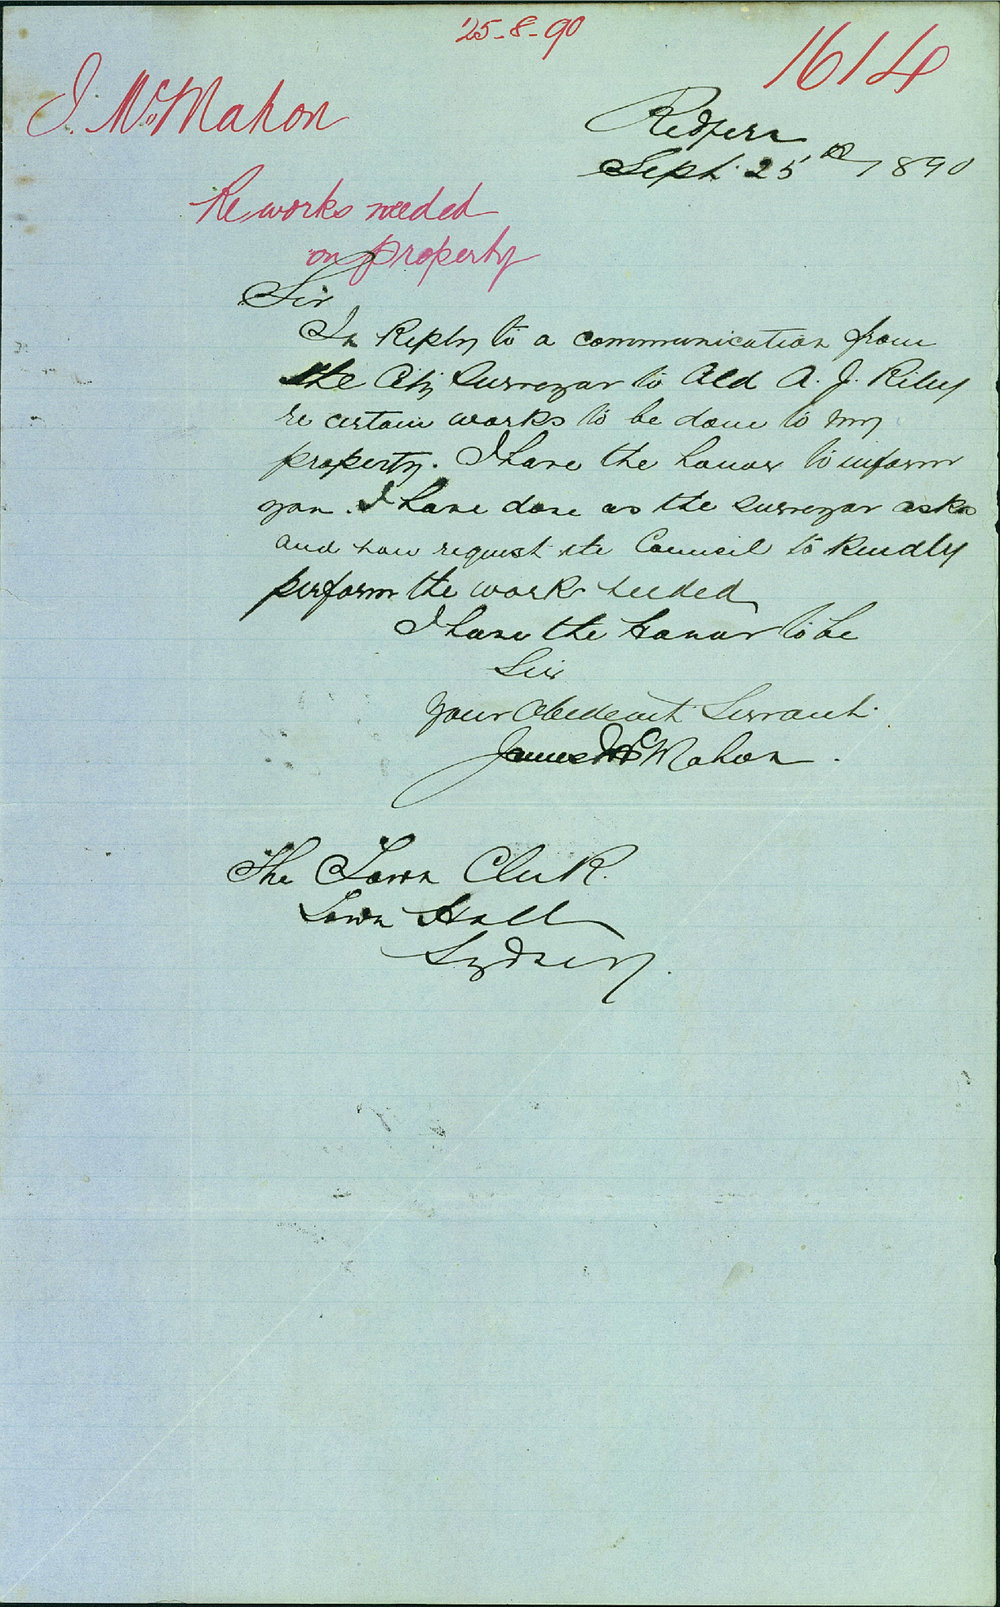 25-8-90
1614
J. McMahon
Redfern
Sept 25th 1890
Re works needed
on property
Sir
In Reply to a communication from
the City Surveyor to Ald A. J. Riley
re certain works to be done to my
property. I have the honor to inform
you. I have done as the surveyor asks
and now request the Council to kindly
perform the work needed
I have the honor to be
Sir
Your Obedient Servant
James McMahon.
The Town Clerk.
Town Hall
Sydney.